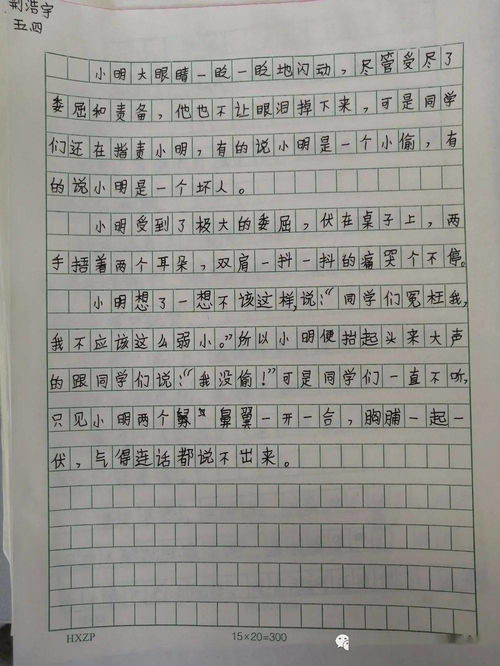 荆浩宇
五.四
小明大眼睛一眨一眨地闪动，尽管受尽了
委屈和责备，他也不让眼泪掉下来，可是同学
们还在指责小明，有的说小明是一个小偷，有
的说小明是一个坏人。
小明受到了极大的委屈，伏在桌子上，两
手捂着两个耳朵，双肩一抖一抖的痛哭个不停。
小明想了一想不该这样，说：“同学们冤枉我，
我不应该这么弱小。”所以小明便抬起头来大声
的跟同学们说：“我没偷！”可是同学们一直不听，
只见小明两个鼻翼一开一合，胸脯一起一
伏，气得连话都说不出来。
HXZP
15×20=300